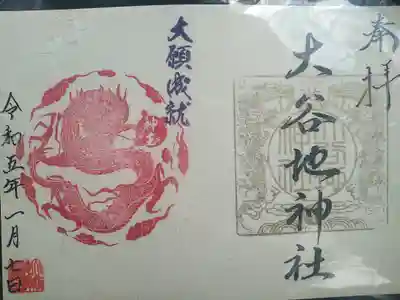 奉拝
大谷地神社
大願成就
令和五年一月七日